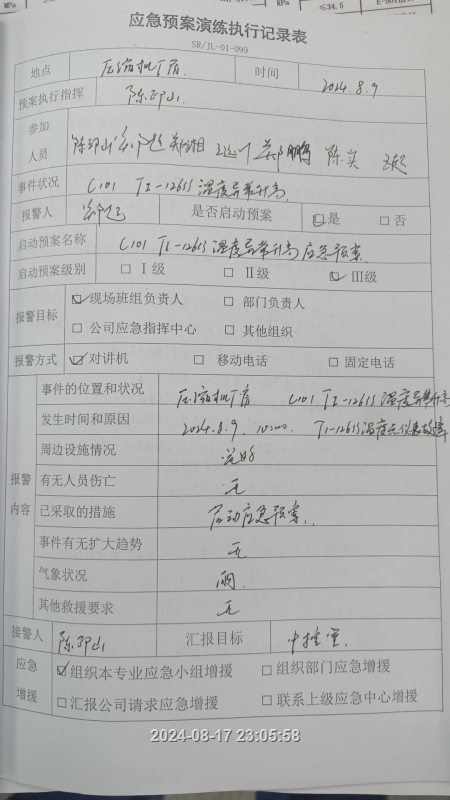 MPa KPa ≤34.5
应急预案演练执行记录表
SR/JL-01-099
地点 压缩机厂房 时间 2024.8.9
预案执行指挥
参加人员 陈实
事件状况 C101 TI-12615 温度异常升高
报警人 是否启动预案 ☑是 □否
启动预案名称 C101 TI-12615 温度异常升高应急预案
启动预案级别 □Ⅰ级 □Ⅱ级 ☑Ⅲ级
报警目标 ☑现场班组负责人 □部门负责人
□公司应急指挥中心 □其他组织
报警方式 ☑对讲机 □移动电话 □固定电话
报警内容 事件的位置和状况 压缩机厂房 C101 TI-12615 温度异常升高
发生时间和原因 2024.8.9. 10:00 TI-12615温度
周边设施情况 完好
有无人员伤亡 无
已采取的措施 启动应急预案
事件有无扩大趋势 无
气象状况 雨
其他救援要求 无
接警人 汇报目标 中控室
应急增援 ☑组织本专业应急小组增援 □组织部门应急增援
□汇报公司请求应急增援 □联系上级应急中心增援
2024-08-17 23:05:58